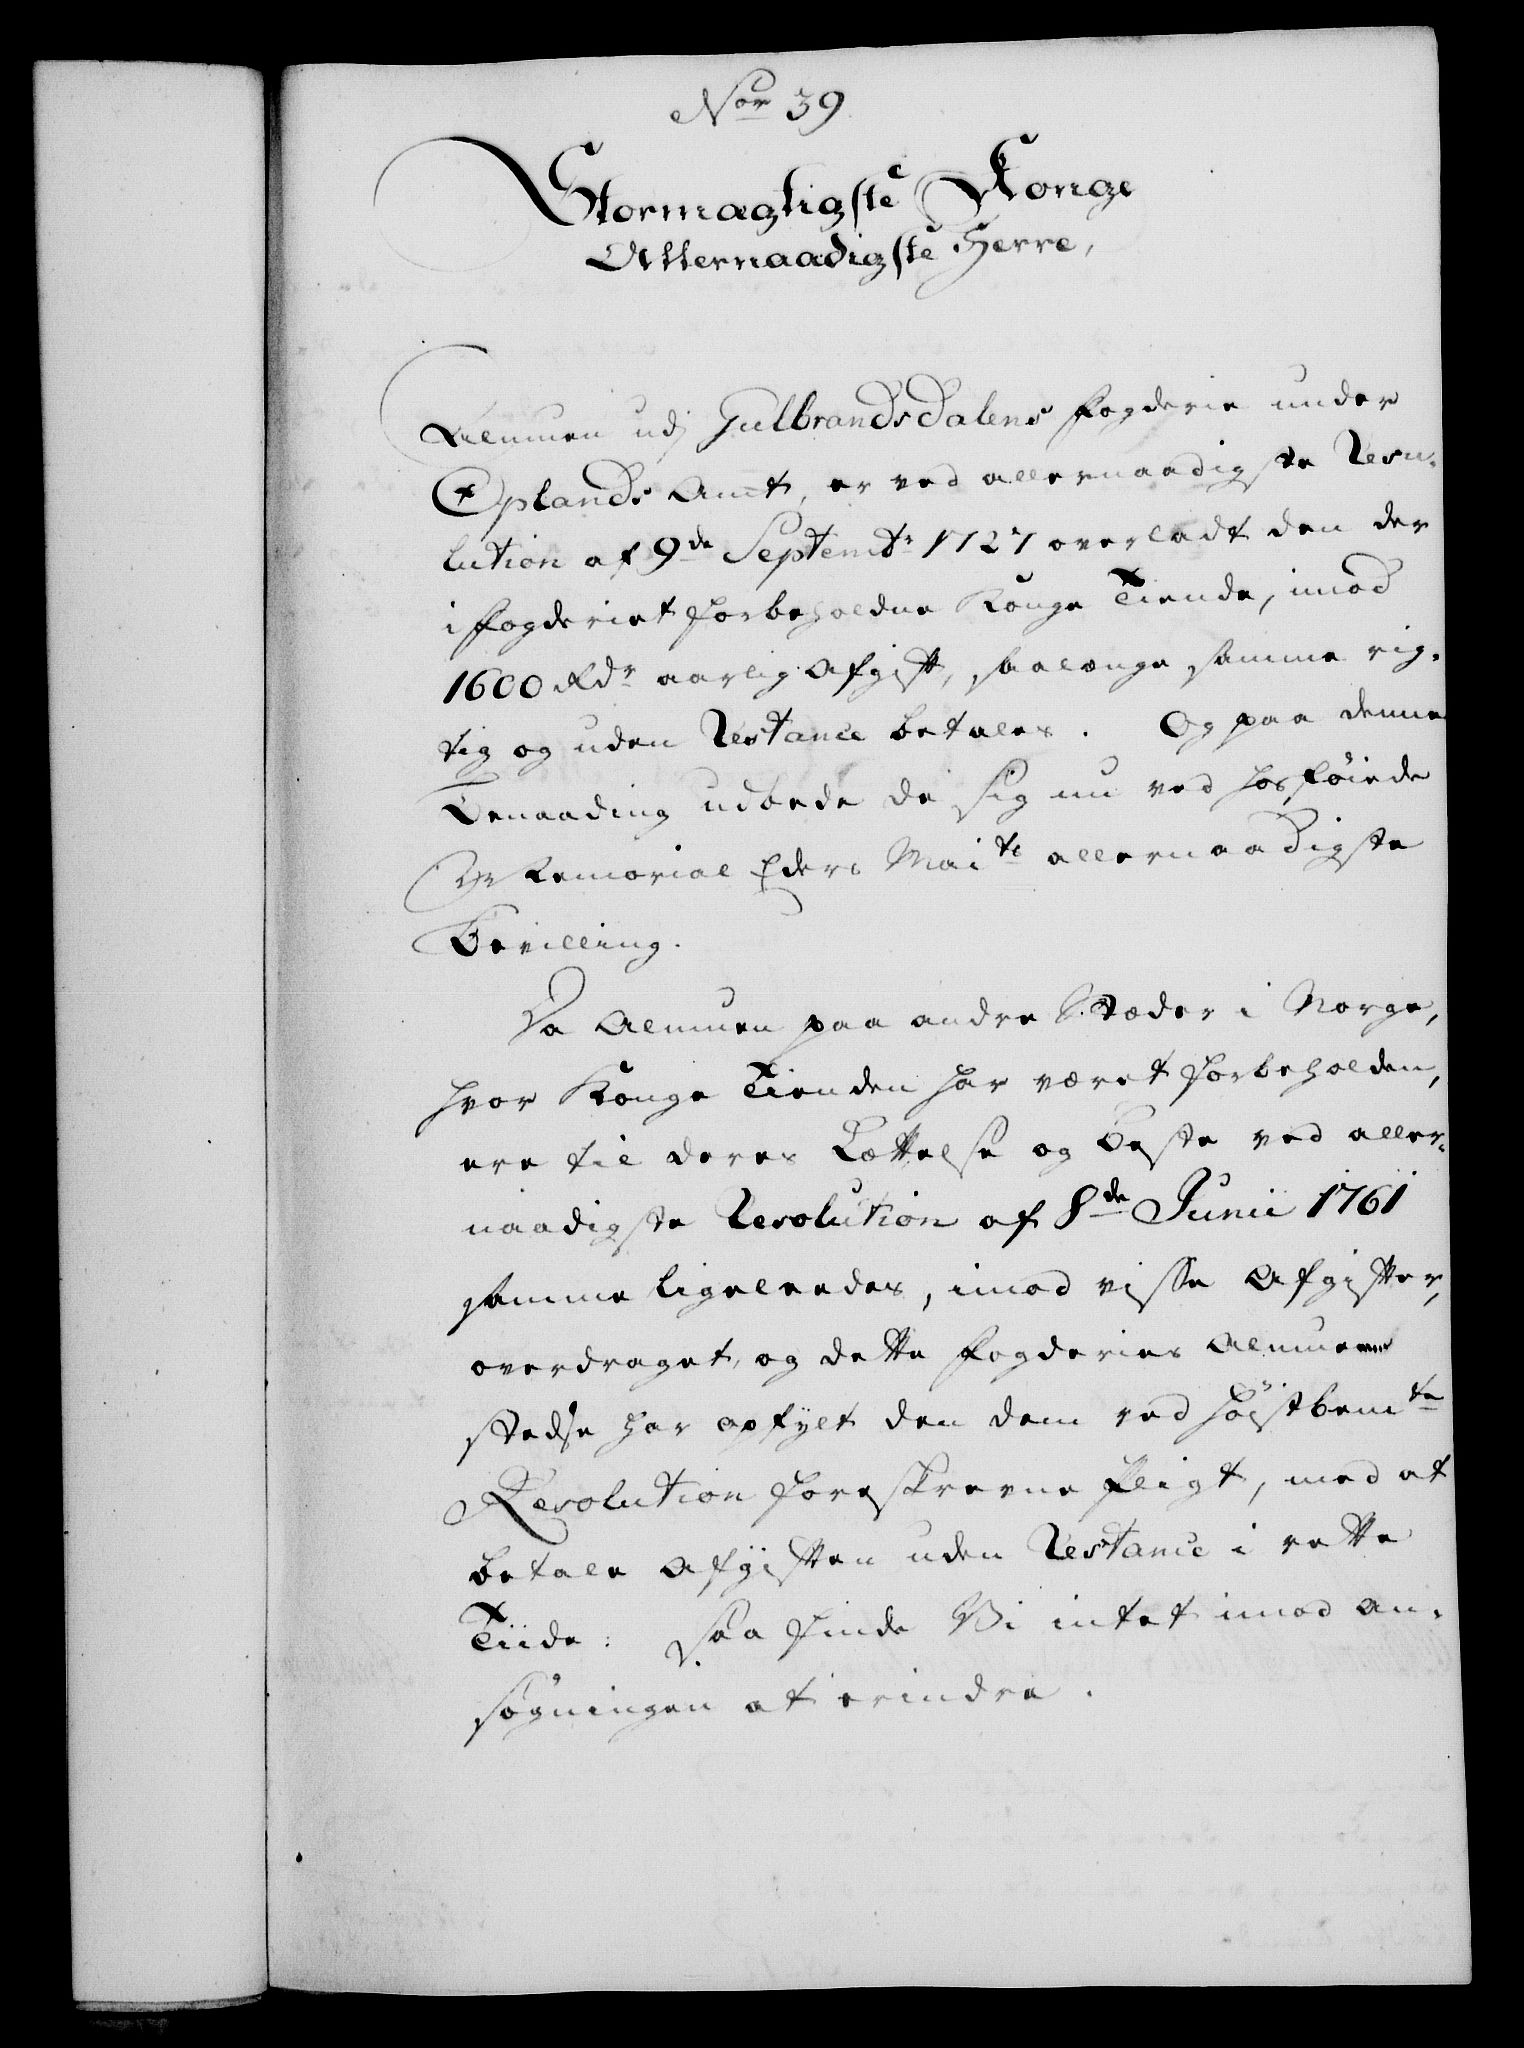 Nor 39
Stormægtigste Konge
Allernaadigste Herre,
Almuen udj Gulbrandsdalens Fogderie under
Oplands Amt, er ved allernaadigste Reso-
lution af 9de Septembr 1727 overladt den der
i Fogderiet forbeholdne Konge Tiende, imod
1600 Rdr aarlig Afgift, saalænge samme rig-
tig og uden Restance betales. Og paa denne
Benaading udbede de sig nu ved hosføiede
Memorial Eders Maits allernaadigste
Bevilling.
Da Almuen paa andre Stæder i Norge,
hvor Konge Tienden har været forbeholden,
ere til deres Lættelse og Beste ved aller-
naadigste Resolution af 8de Junii 1761
samme ligeleedes, imod visse Afgifter,
overdraget, og dette Fogderies Almue
stedse har opfylt den dem ved høistbemte
Resolution foreskrevne Pligt, med at
betale Afgiften uden Restance i rette
Tiide: saa finde Vi intet imod An-
søgningen at erindre.